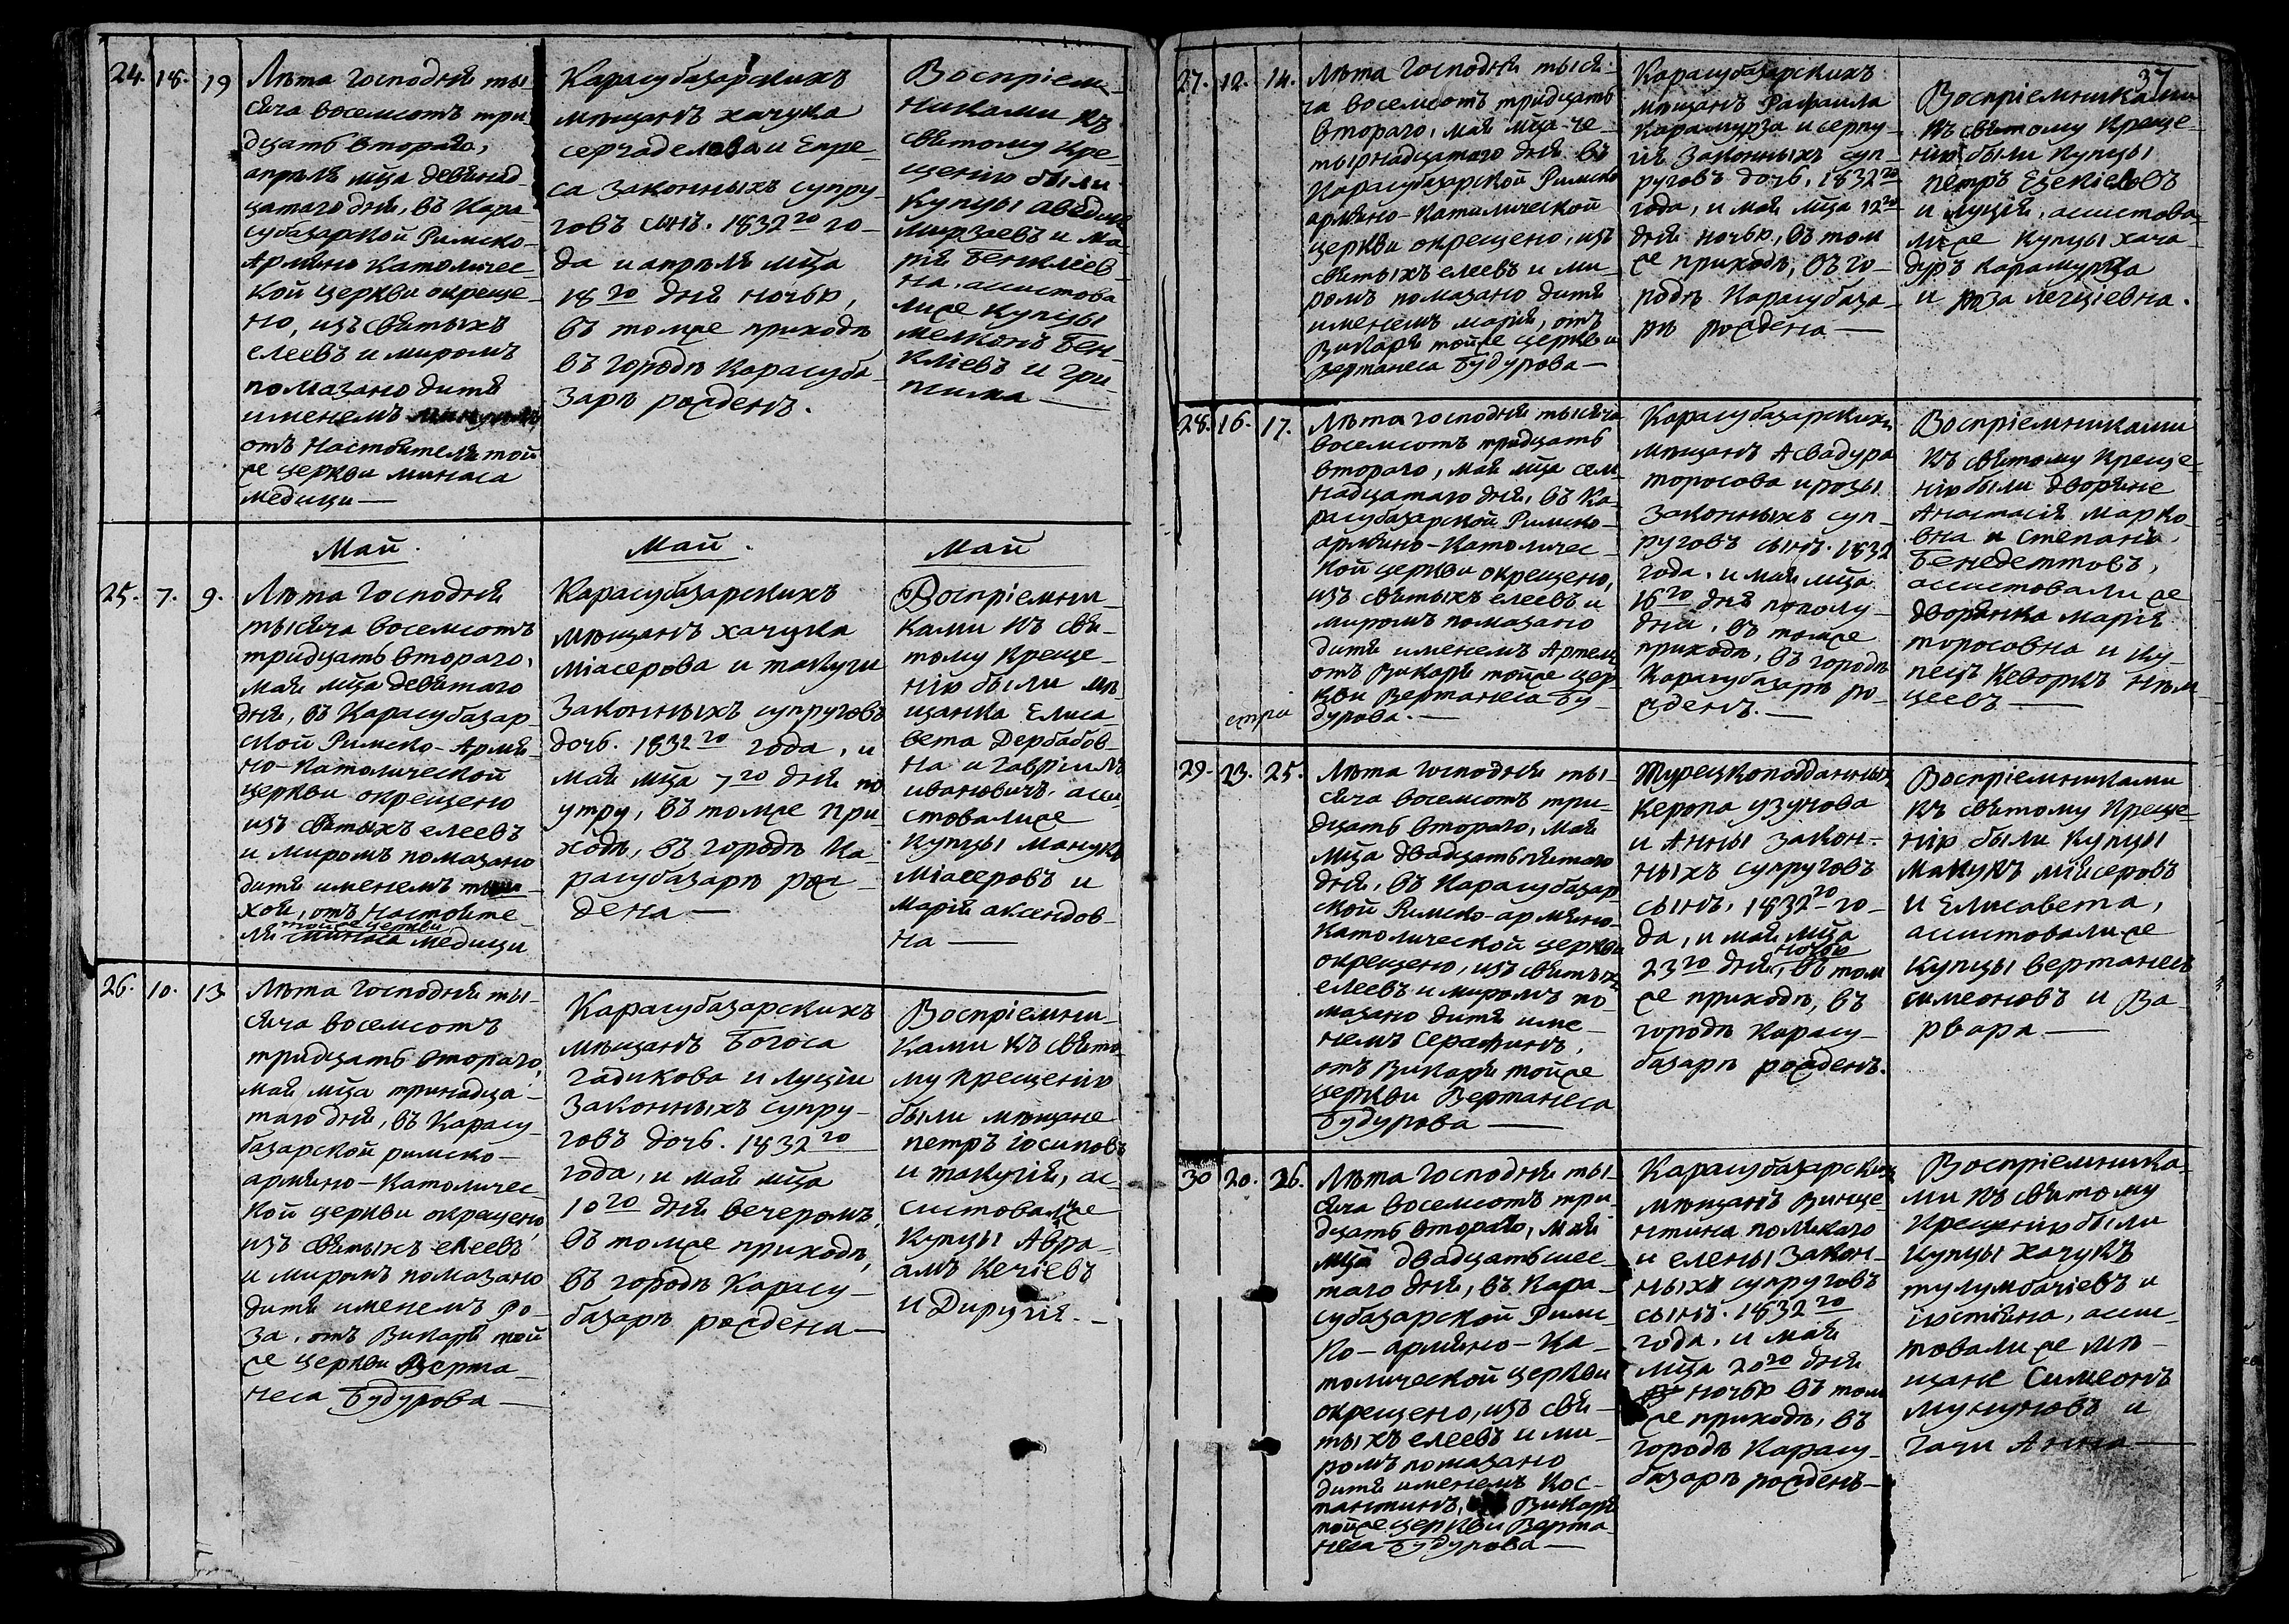 24. 18. 19
Лѣта Господня ты-
сяча восемсотъ три-
дцать втораго,
апрѣля мца девянад-
цатаго дня, въ Кара-
субазарской Римско-
Армяно Католичес-
кой церкви окреще-
но, изъ святыхъ
елеевъ и миромъ
помазано дитя
именемъ
отъ Настоятеля той
же церкви минаса
медици —
Карасубазарскихъ
мѣщанъ хачука
и Епре-
са законныхъ супру-
говъ сынъ. 1832го го-
да и апрѣля мца
18го дня ночью,
въ томже приходѣ
въ городѣ Карасуба-
зарѣ рожденъ.
Воспріем-
никами къ
святому кре-
щенію были
купцы аведикъ
мирзаевъ и ма-
рія Бенклiев-
на, ассистова
лиже купцы
мелконъ Бен-
кліевъ и гри-
псима —
Май.
Май.
Май
25. 7. 9.
Лѣта Господня
тысяча восемсотъ
тридцать втораго,
мая мца девятаго
дня, въ Карасубазар-
ской Римско-Армя-
но-Католической
церкви окрещено
изъ святыхъ елеевъ
и миромъ помазано
дитя именемъ
отъ Настояте-
тойже церкви
ля минаса медици
Карасубазарскихъ
мѣщанъ хачука
міасерова и такуги
законныхъ супруговъ
дочь. 1832го года, и
мая мца 7го дня по
утру, въ томже при-
ходѣ, въ городѣ Ка-
расубазарѣ рож-
дена —
Воспріемни-
ками къ свя-
тому креще-
нію были мѣ
щанка Елиса-
вета Дербабов-
на и гавріилъ
ивановичъ, асси-
стовалиже
купцы манукъ
міасеровъ и
марія аксендов-
на —
26. 10. 13.
Лѣта Господня ты-
сяча восемсотъ
тридцать втораго,
мая мца тринадца-
таго дня, въ Карасу-
базарской римско-
армяно-Католичес-
кой церкви окрещено
изъ святыхъ елеевъ
и миромъ помазано
дитя именемъ Ро-
за, отъ Викаря той
же церкви Верта-
неса Будурова —
Карасубазарскихъ
мѣщанъ Богоса
гадикова и луціи
законныхъ супру-
говъ дочь. 1832го
года, и мая мца
10го дня вечеромъ,
въ томже приходѣ,
въ городѣ Карасу-
базарѣ рождена —
Воспріемни-
ками къ свято-
му крещенію
были мѣщане
петръ іосиповъ
и такугія, ас-
систовалиже
купцы Авра-
амъ Кечіевъ
и Диругія. —
37
27. 12. 14.
Лѣта Господня тыся-
ча восемсотъ тридцать
втораго, мая мца че-
тырнадцатаго дня въ
Карасубазарской Римско
армяно-Католической
церкви окрещено, изъ
святыхъ елеевъ и ми-
ромъ помазано дитя
именемъ марія, отъ
Викаря тойже церкви
Вертанеса Будурова —
Карасубазарскихъ
мѣщанъ Рафаила
Карамурза и серпу-
гія законныхъ суп-
руговъ дочь, 1832го
года, и мая мца 12го
дня ночью, въ том
же приходѣ, въ го-
родѣ Карасубаза-
рѣ рождена —
Воспріемниками
къ святому креще-
нію были купцы
петръ Езекіевъ
и луція, ассистова-
лиже купцы хача-
дуръ карамурза
и роза
28. 16. 17.
Лѣта господня тысяча
восемсотъ тридцать
втораго, мая мца сем
надцатаго дня, въ Ка-
расубазарской Римско-
армяно-Католичес-
кой церкви окрещено,
изъ святыхъ елеевъ и
миромъ помазано
дитя именемъ Артемъ
отъ Викаря тойже цер-
кви Вертанеса Бу-
дурова. —
Карасубазарскихъ
мѣщанъ Асвадура
торосова и розы
законныхъ суп-
руговъ сынъ. 1832
года, и мая мца
16го дня пополу-
дни, въ томже
приходѣ, въ городѣ
Карасубазарѣ ро-
жденъ. —
Воспріемниками
къ святому креще-
нію были дворяне
Анастасія марко-
вна и степанъ
Бенедеттовъ,
ассистовали же
дворянка марія
торосовна и ку-
пецъ Кеворкъ
29. 23. 25.
Лѣта господня ты-
сяча восемсотъ три-
дцать втораго, мая
мца двадцать пятаго
дня, въ Карасубазар
ской Римско-армяно-
Католической церкви
окрещено, изъ святыхъ
елеевъ и миромъ по-
мазано дитя име-
немъ Серафинъ,
отъ Викаря тойже
церкви Вертанеса
Будурова —
Турецкоподданныхъ
керопа узунова
и Анны закон-
ныхъ супруговъ
сынъ, 1832го го-
да, и мая мца
ночью
23го дня, въ том
же приходѣ, въ
городѣ Карасу-
базарѣ рожденъ.
Воспріемниками
къ святому креще-
нію были купцы
манукъ міясеровъ
и Елисавета,
ассистовали же
купцы вертанесъ
симеоновъ и Ва-
рвара —
30 20. 26.
Лѣта Господня ты-
сяча восемсотъ три-
дцать втораго, мая
мца двадцать шес-
таго дня, въ Кара-
субазарской Римс-
ко-армяно-Ка-
толической церкви
окрещено, изъ свя-
тыхъ елеевъ и ми-
ромъ помазано
дитя именемъ Кос-
тантинъ, Викаря
тойже церкви Верта-
неса Будурова —
Карасубазарскихъ
мѣщанъ Винце-
нтина
и елены закон-
ныхъ супруговъ
сынъ. 1832го
года, и мая
мца 20го дня
ночью въ том
же приходѣ, въ
городѣ Карасу-
базарѣ рожденъ —
Воспріемника-
ми къ святому
крещенію были
купцы хачукъ
тулумбачіевъ и
іустіяна, асси-
товали же мѣ-
щане Симеонъ
и
гачи Анна —